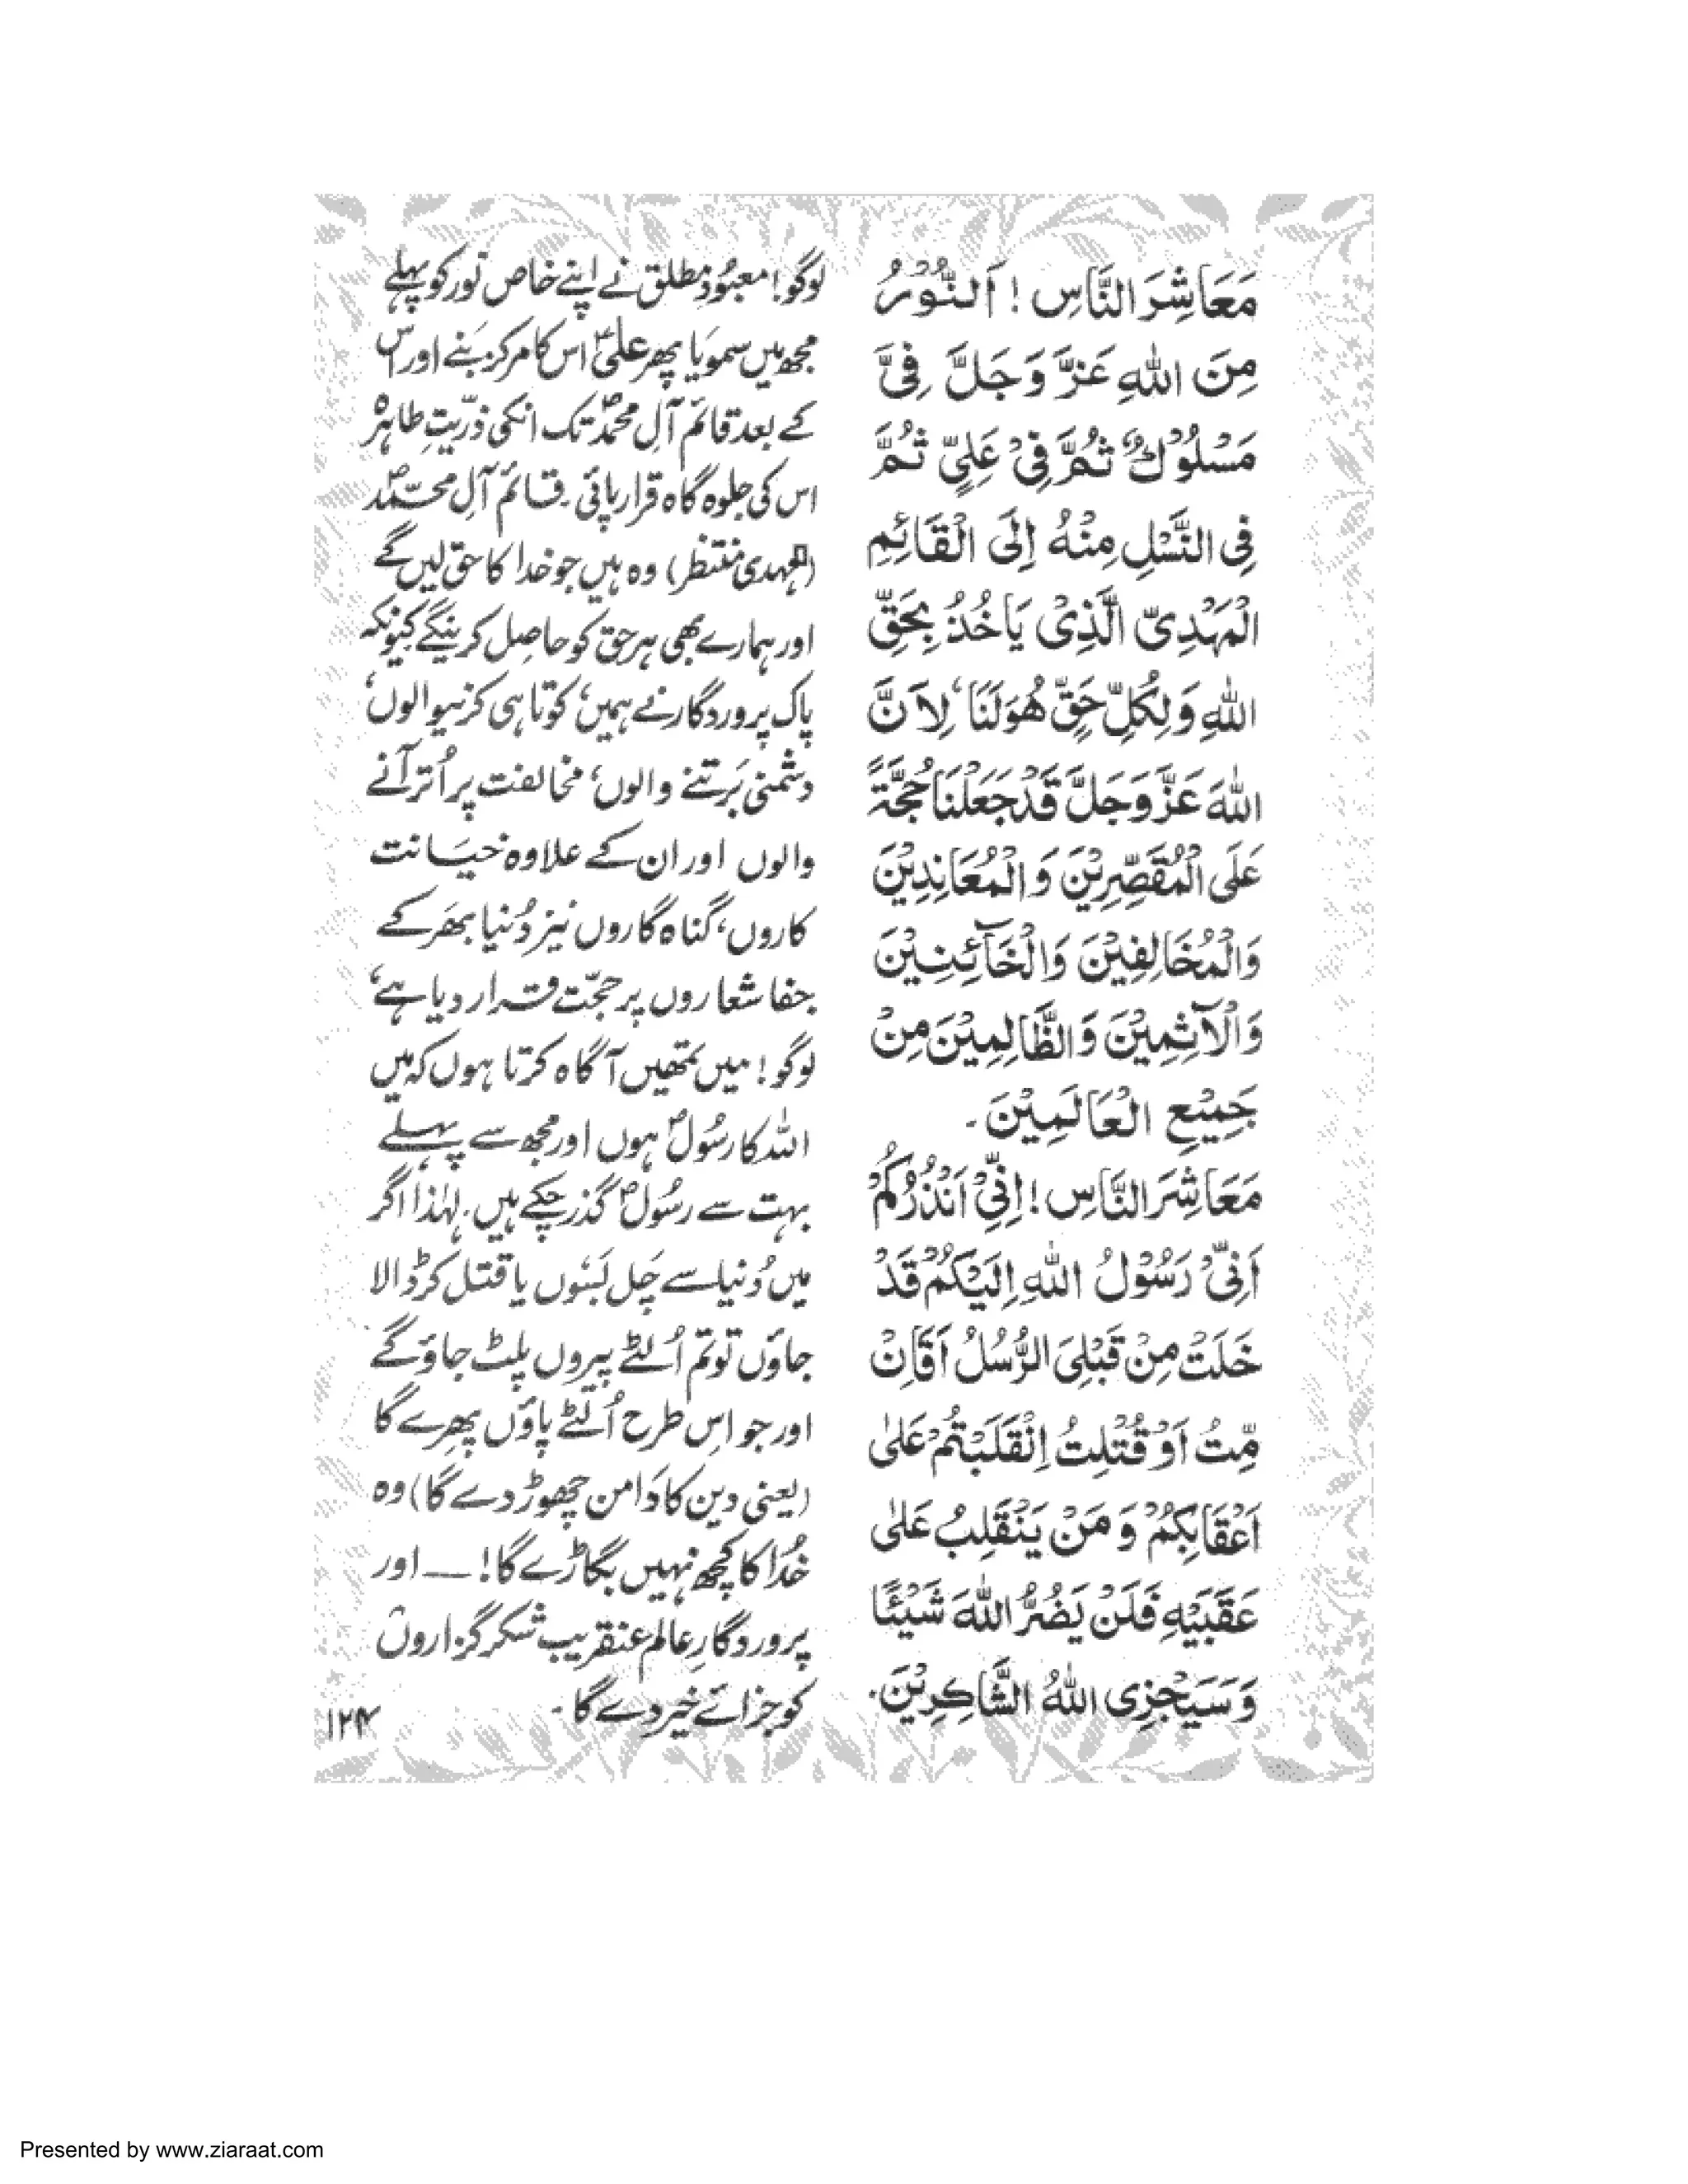 مَعَاشِرَ النَّاسِ ! اَلنُّوْرُ
مِنَ اللّٰهِ عَزَّ وَجَلَّ فِیَّ
مَسْلُوْكٌ ثُمَّ فِیْ عَلِیٍّ ثُمَّ
فِی النَّسْلِ مِنْهُ اِلَی الْقَائِمِ
الْمَهْدِیِّ الَّذِیْ یَاخُذُ بِحَقِّ
اللّٰهِ وَلِكُلِّ حَقٍّ هُوَلَنَا، لِاَنَّ
اللّٰهَ عَزَّ وَجَلَّ قَدْ جَعَلْنَا حُجَّةً
عَلَی الْمُقَصِّرِیْنَ وَالْمُعَانِدِیْنَ
وَالْمُخَالِفِیْنَ وَالْخَآئِنِیْنَ
وَالْآثِمِیْنَ وَالظَّالِمِیْنَ مِنْ
جَمِیْعِ الْعَالَمِیْنَ۔
مَعَاشِرَ النَّاسِ ! اِنِّیْ اَنْذُرُكُمْ
اَنِّیْ رَسُوْلُ اللّٰهِ اِلَیْكُمْ قَدْ
خَلَتْ مِنْ قَبْلِیَ الرُّسُلُ اَفَاِنْ
مِّتُ اَوْ قُتْلِتُ اِنْقَلَبْتُمْ عَلٰی
اَعْقَابِكُمْ وَ مَنْ یَنْقَلِبُ عَلٰی
عَقَبَیْهِ فَلَنْ یَضُرُّ اللّٰهَ شَیْئًا
وَسَیَجْزِی اللّٰهُ الشَّاكِرِیْنَ۔
لوگو! معبُودِ مطلق نے اپنے خاص نور کو پہلے
مجھ میں سمویا پھر علیؑ اس کا مرکز بنے اور اس
کے بعد قائم آلِ محمدؐ تک انکی ذرّیتِ طاہرہ
اس کی جلوہ گاہ قرار پائی۔ قائم آلِ محمّدؐ
(المہدی منتظر) وہ ہیں جو خدا کا حق لیں گے
اور ہمارے بھی ہر حق کو حاصِل کرینگے کیونکہ
پاک پروردگار نے ہمیں، کوتاہی کرنیوالوں،
دشمنی برتنے والوں، مخالفت پر اُتر آنے
والوں اور ان کے علاوہ خیانت
کاروں، گناہ گاروں نیز دُنیا بھر کے
جفا شعاروں پر حجّت قرار دیا ہے،
لوگو! میں تمھیں آگاہ کرتا ہوں کہ میں
اللہ کا رسُولؐ ہوں اور مجھ سے پہلے
بہت سے رسُولؐ گذر چکے ہیں۔ لہٰذا اگر
میں دُنیا سے چَل بَسُوں یا قتل کر ڈالا
جاؤں تو تم اُلٹے پیروں پلٹ جاؤ گے
اور جو اِس طرح اُلٹے پاؤں پھِرے گا
(یعنی دین کا دَامن چھوڑ دے گا) وہ
خُدا کا کچھ نہیں بگاڑے گا! — اور
پروردگارِ عالم عنقریب شکر گزاروں
کو جزائے خیر دے گا۔
۱۲۴
Presented by www.ziaraat.com